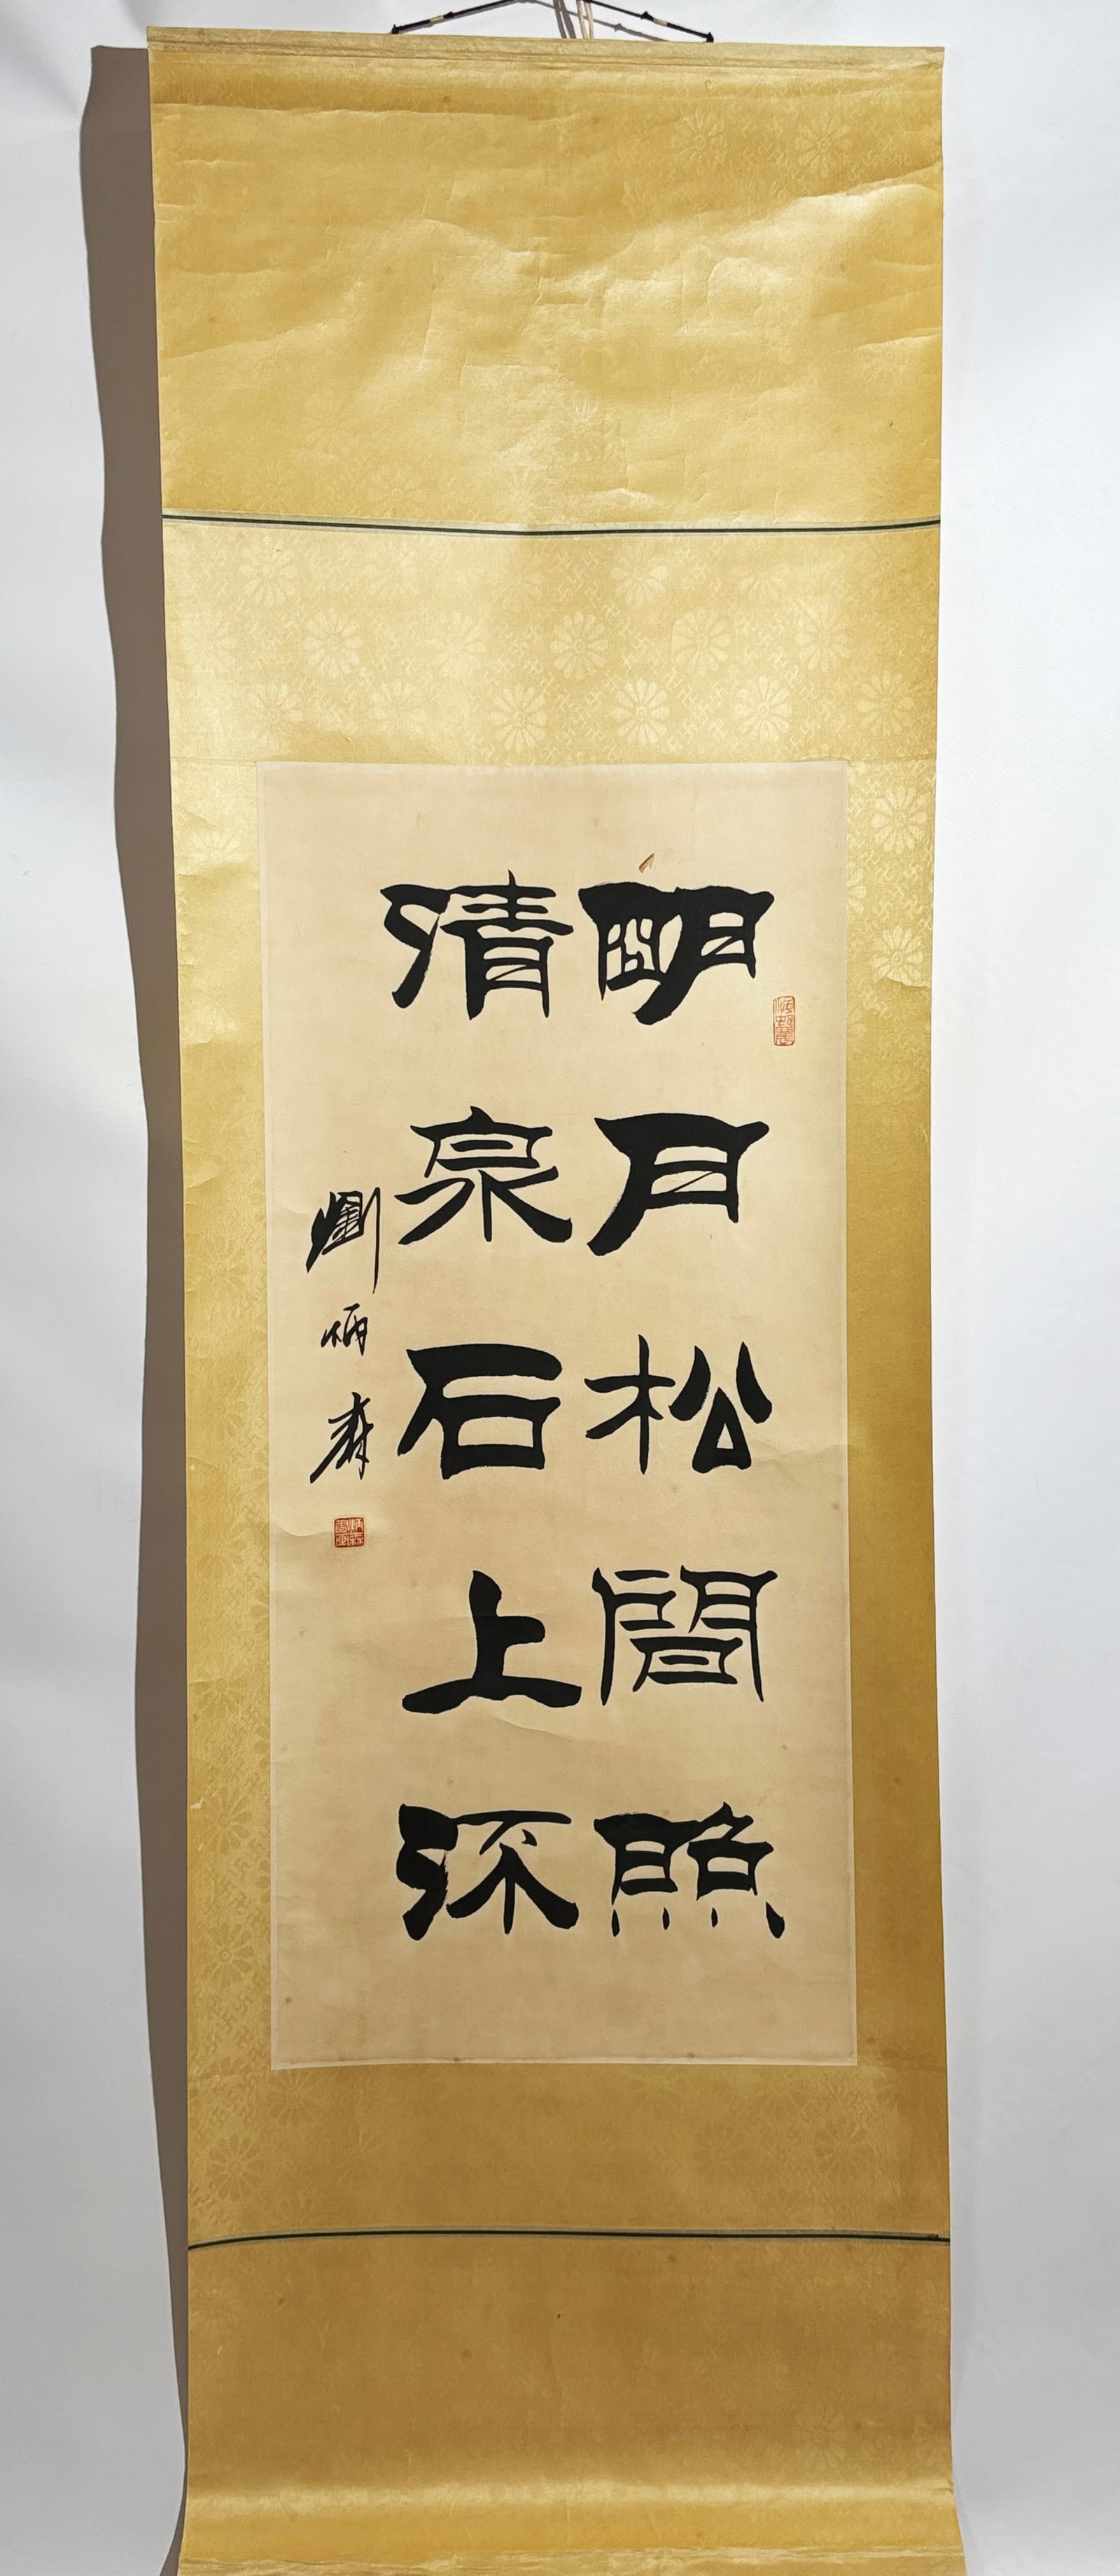 明月松間照
清泉石上流
劉炳森